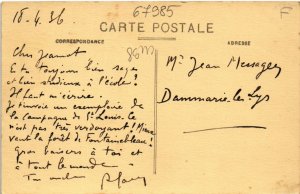 18.4.36
67985
F
CARTE POSTALE
CORRESPONDANCE
ADRESSE
Cher Jeannot
Es tu toujours bien sage
et bien studieux à l'école?
Il faut m'écrire.
Je t'envoie un exemplaire de
la campagne de St Louis. Ce
n'est pas très verdoyant! Mieux
vaut la forêt de Fontainebleau!
Gros baisers à toi et
à tout le monde
Ton
Mr Jean Messager
Dammarie les Lys